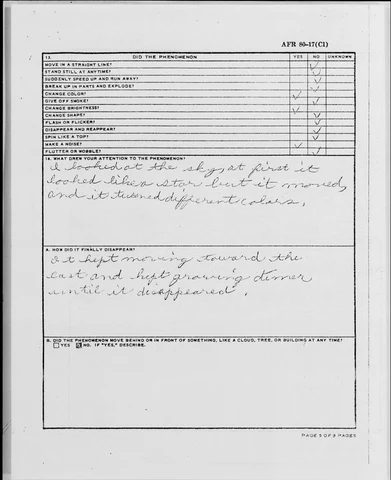 AFR 80-17(C1)
13. DID THE PHENOMENON YES NO UNKNOWN
MOVE IN A STRAIGHT LINE? ✓
STAND STILL AT ANYTIME? ✓
SUDDENLY SPEED UP AND RUN AWAY? ✓
BREAK UP IN PARTS AND EXPLODE? ✓
CHANGE COLOR? ✓
GIVE OFF SMOKE? ✓
CHANGE BRIGHTNESS? ✓
CHANGE SHAPE? ✓
FLASH OR FLICKER? ✓
DISAPPEAR AND REAPPEAR? ✓
SPIN LIKE A TOP? ✓
MAKE A NOISE? ✓
FLUTTER OR WOBBLE? ✓
14. WHAT DREW YOUR ATTENTION TO THE PHENOMENON?
I looked at the sky, at first it
looked like a star but it moved,
and it turned different colors.
A. HOW DID IT FINALLY DISAPPEAR?
It kept moving toward the
east and kept growing dimer
until it disappeared.
B. DID THE PHENOMENON MOVE BEHIND OR IN FRONT OF SOMETHING, LIKE A CLOUD, TREE, OR BUILDING AT ANY TIME?
YES NO. IF "YES," DESCRIBE.
PAGE 3 OF 5 PAGES